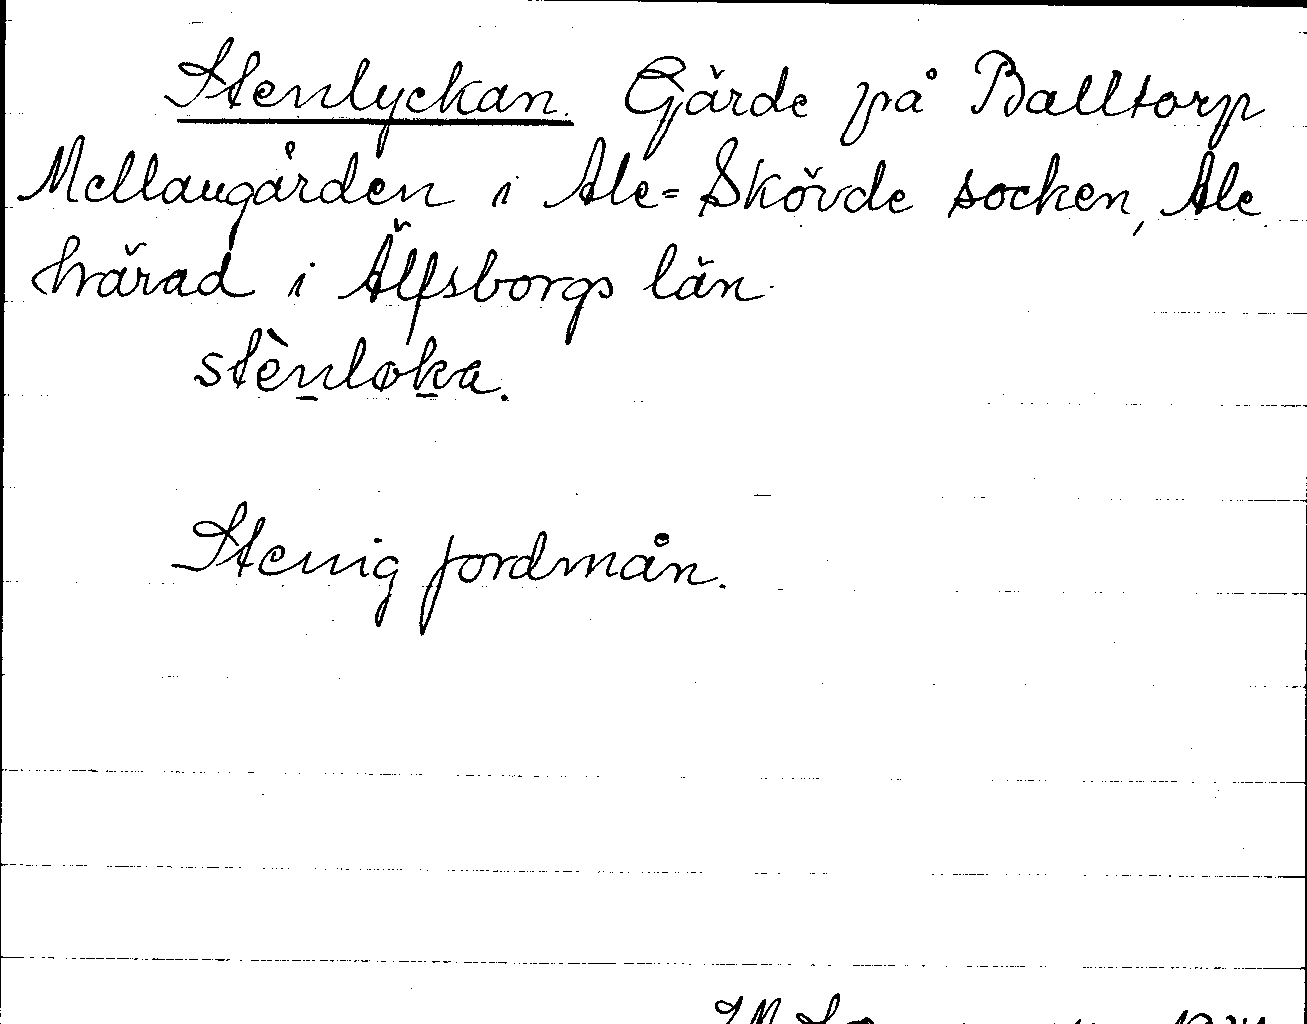 Stenlyckan. Gärde på Balltorp
Mellangården i Ale=Skövde socken, Ale
härad i Älfsborgs län.
stènloka.
Stenig jordmån.